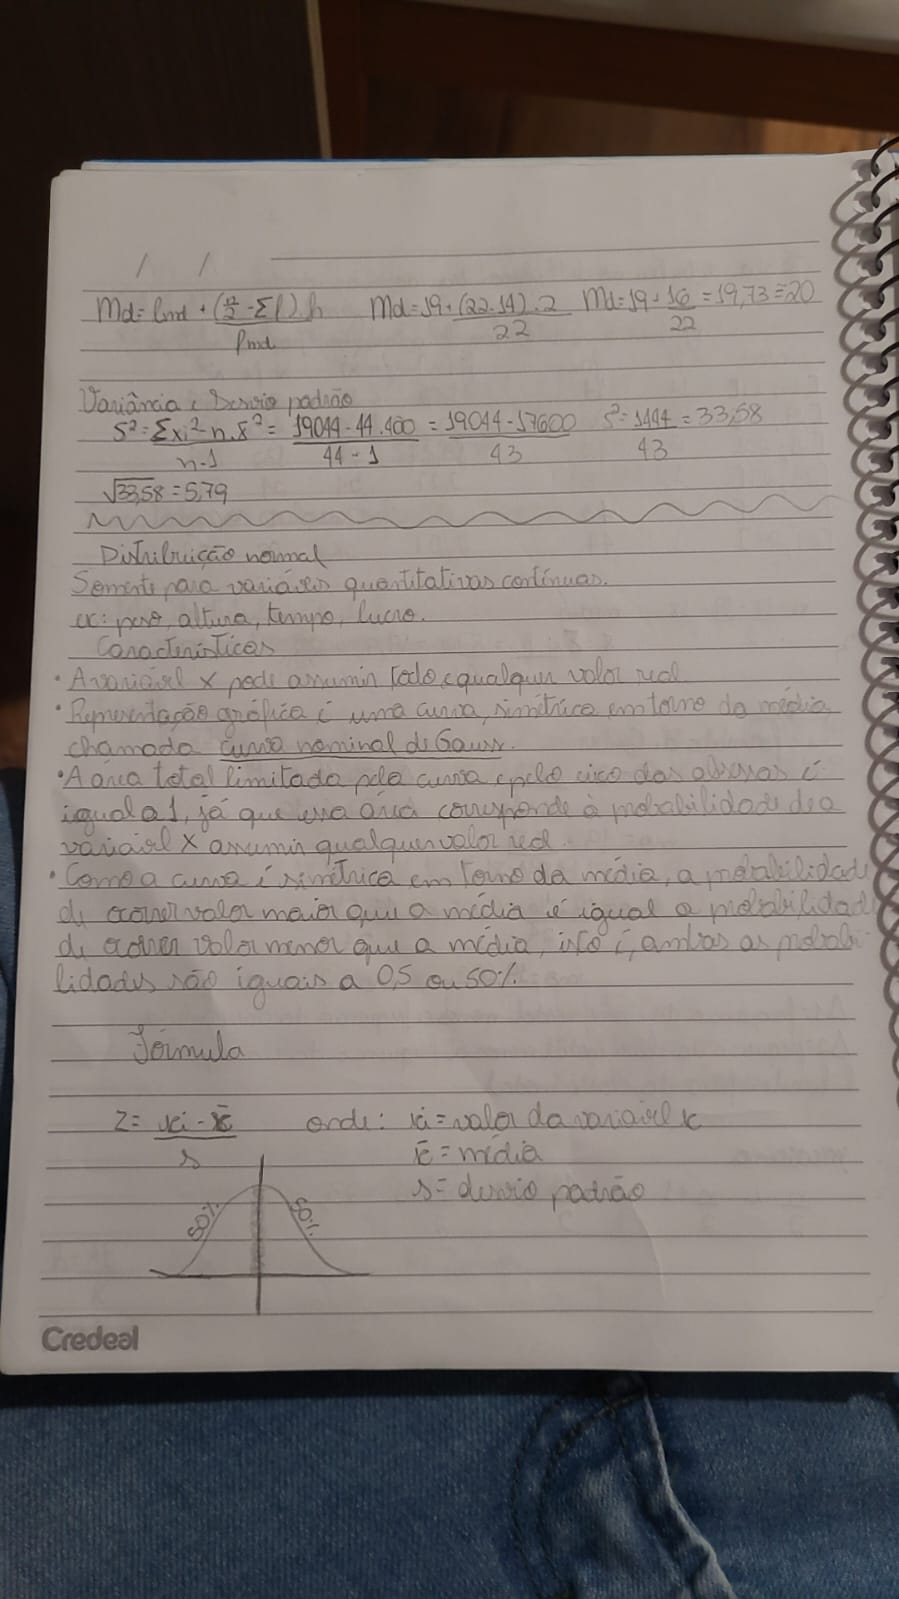 / /
Md = lmd + (n/2 - Σf).h / fmd Md = 19 + (22-14).2 / 22 Md = 19 + 16/22 = 19,73 ≅ 20
Variância e Desvio padrão
S² = Σxi² - n.x̄² / n-1 = 19044 - 44.400 / 44-1 = 19044 - 17600 / 43 s² = 1444/43 = 33,58
√33,58 = 5,79
Distribuição normal
Somente para variáveis quantitativas contínuas.
ex: peso, altura, tempo, lucro.
Características
• A variável x pode assumir todo e qualquer valor real
• Representação gráfica é uma curva, simétrica em torno da média,
chamada curva nominal de Gauss.
• A área total limitada pela curva e pelo eixo das abscissas é
igual a 1, já que essa área corresponde à probabilidade de a
variável x assumir qualquer valor real.
• Como a curva é simétrica em torno da média, a probabilidade
de ocorrer valor maior que a média é igual a probabilidade
de ocorrer valor menor que a média, isto é, ambas as probabi-
lidades são iguais a 0,5 ou 50%.
Fórmula
Z = xi - x̄ / s onde: xi = valor da variável x
x̄ = média
s = desvio padrão
50% 50%
Credeal